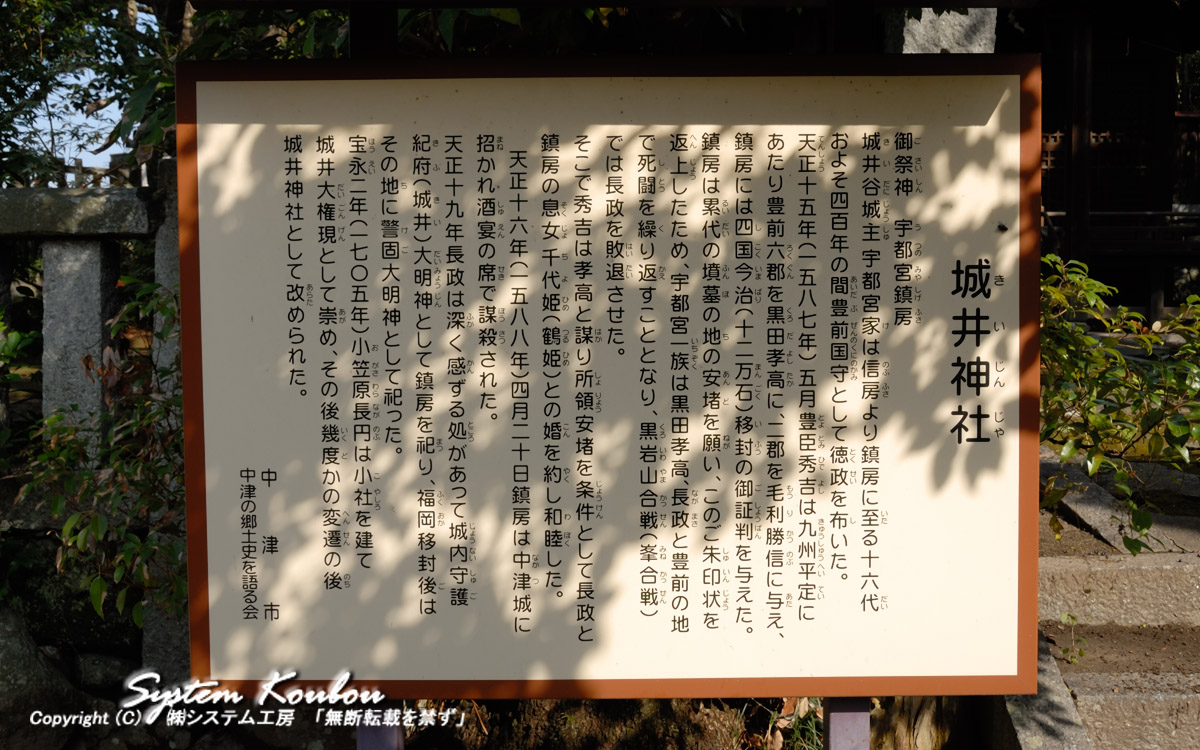 城井神社
御祭神　宇都宮鎮房
城井谷城主宇都宮家は信房より鎮房に至る十六代
およそ四百年の間豊前国守として徳政を布いた。
天正十五年(一五八七年)五月豊臣秀吉は九州平定に
あたり豊前六郡を黒田孝高に、二郡を毛利勝信に与え、
鎮房には四国今治(十二万石)移封の御証判を与えた。
鎮房は累代の墳墓の地の安堵を願い、このご朱印状を
返上したため、宇都宮一族は黒田孝高、長政と豊前の地
で死闘を繰り返すこととなり、黒岩山合戦(峯合戦)
では長政を敗退させた。
そこで秀吉は孝高と謀り所領安堵を条件として長政と
鎮房の息女千代姫(鶴姫)との婚を約し和睦した。
天正十六年(一五八八年)四月二十日鎮房は中津城に
招かれ酒宴の席で謀殺された。
天正十九年長政は深く感ずる処があって城内守護
紀府(城井)大明神として鎮房を祀り、福岡移封後は
その地に警固大明神として祀った。
宝永二年(一七〇五年)小笠原長円は小社を建て
城井大権現として崇め、その後幾度かの変遷の後
城井神社として改められた。
中津市
中津の郷土史を語る会
System Koubou
Copyright (C)　㈱システム工房　「無断転載を禁ず」